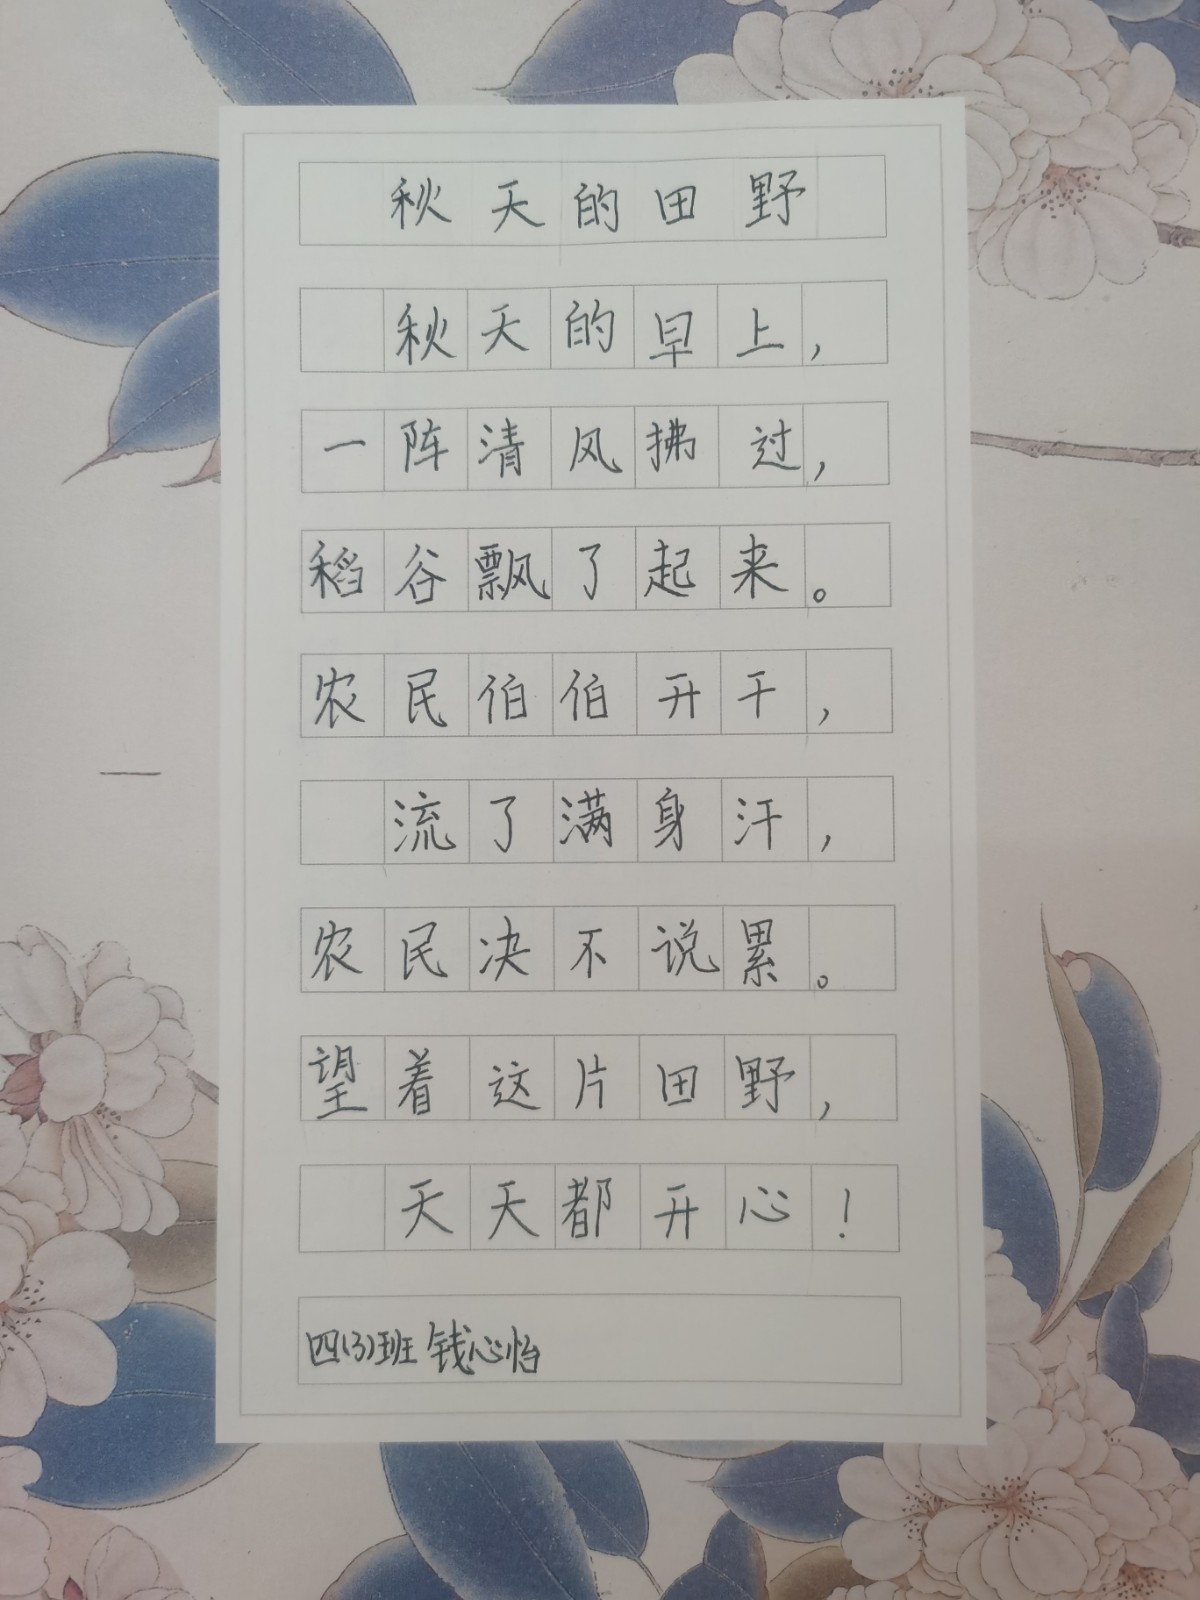 秋天的田野
秋天的早上，
一阵清风拂过，
稻谷飘了起来。
农民伯伯开干，
流了满身汗，
农民决不说累。
望着这片田野，
天天都开心！
四(3)班 钱心怡